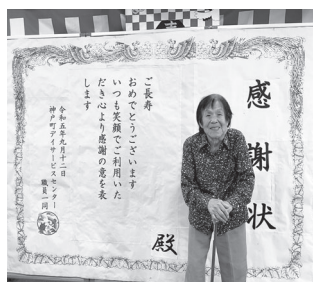 感謝状
殿
ご長寿
おめでとうございます
いつも笑顔でご利用いた
だき心より感謝の意を表
します
令和五年九月十二日
神戸町デイサービスセンター
職員一同